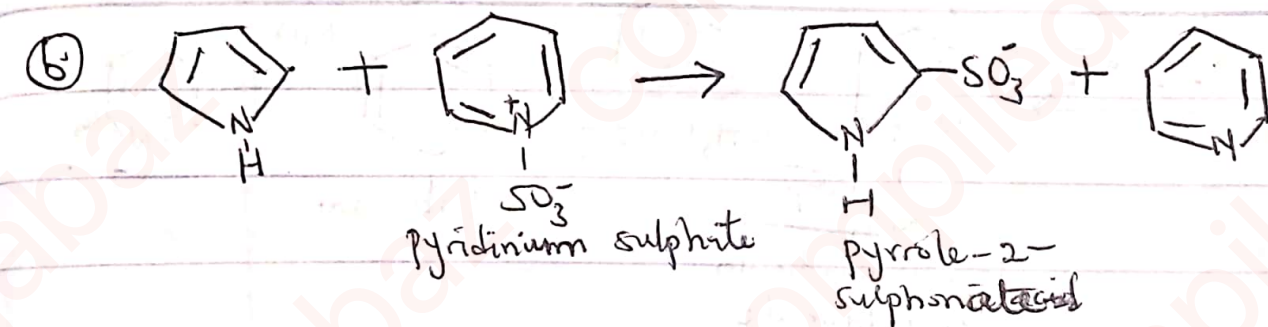 b + → SO₃⁻ +
N
H
⁺N
SO₃⁻
N
H
N
pyridinium sulphite
pyrrole-2-
sulphonate